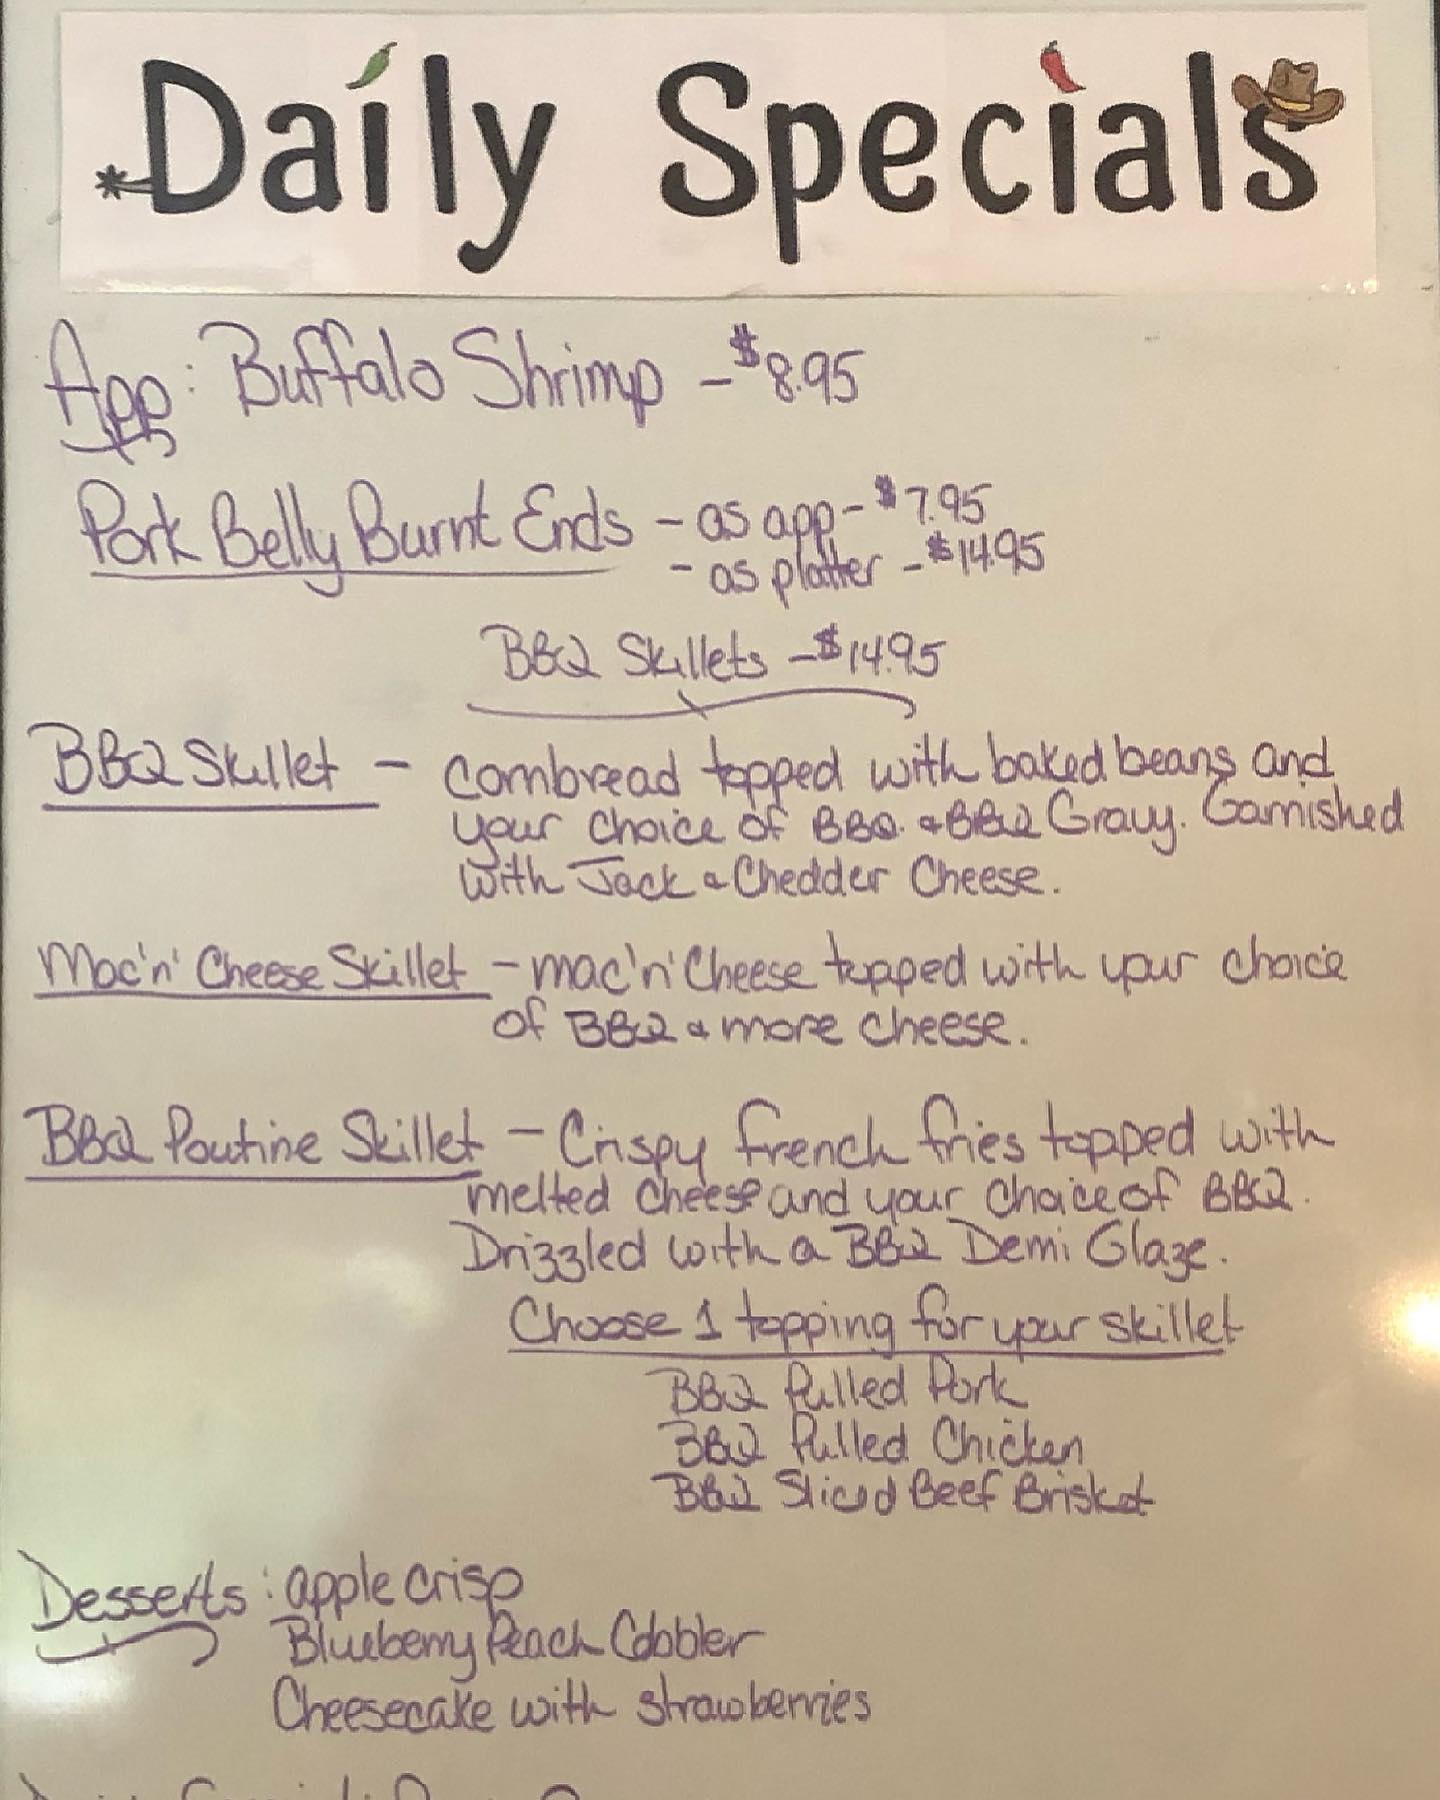 Daily Specials
App: Buffalo Shrimp - $8.95
Pork Belly Burnt Ends - as app - $7.95
- as platter - $14.95
BBQ Skillets - $14.95
BBQ Skillet - Cornbread topped with baked beans and
your choice of BBQ. & BBQ Gravy. Garnished
with Jack & Chedder Cheese.
Mac'n' Cheese Skillet - mac'n' Cheese topped with your choice
of BBQ & more cheese.
BBQ Poutine Skillet - Crispy french fries topped with
melted cheese and your choice of BBQ.
Drizzled with a BBQ Demi Glaze.
Choose 1 topping for your skillet
BBQ Pulled Pork
BBQ Pulled Chicken
BBQ Sliced Beef Brisket
Desserts: apple crisp
Blueberry Peach Cobbler
Cheesecake with strawberries